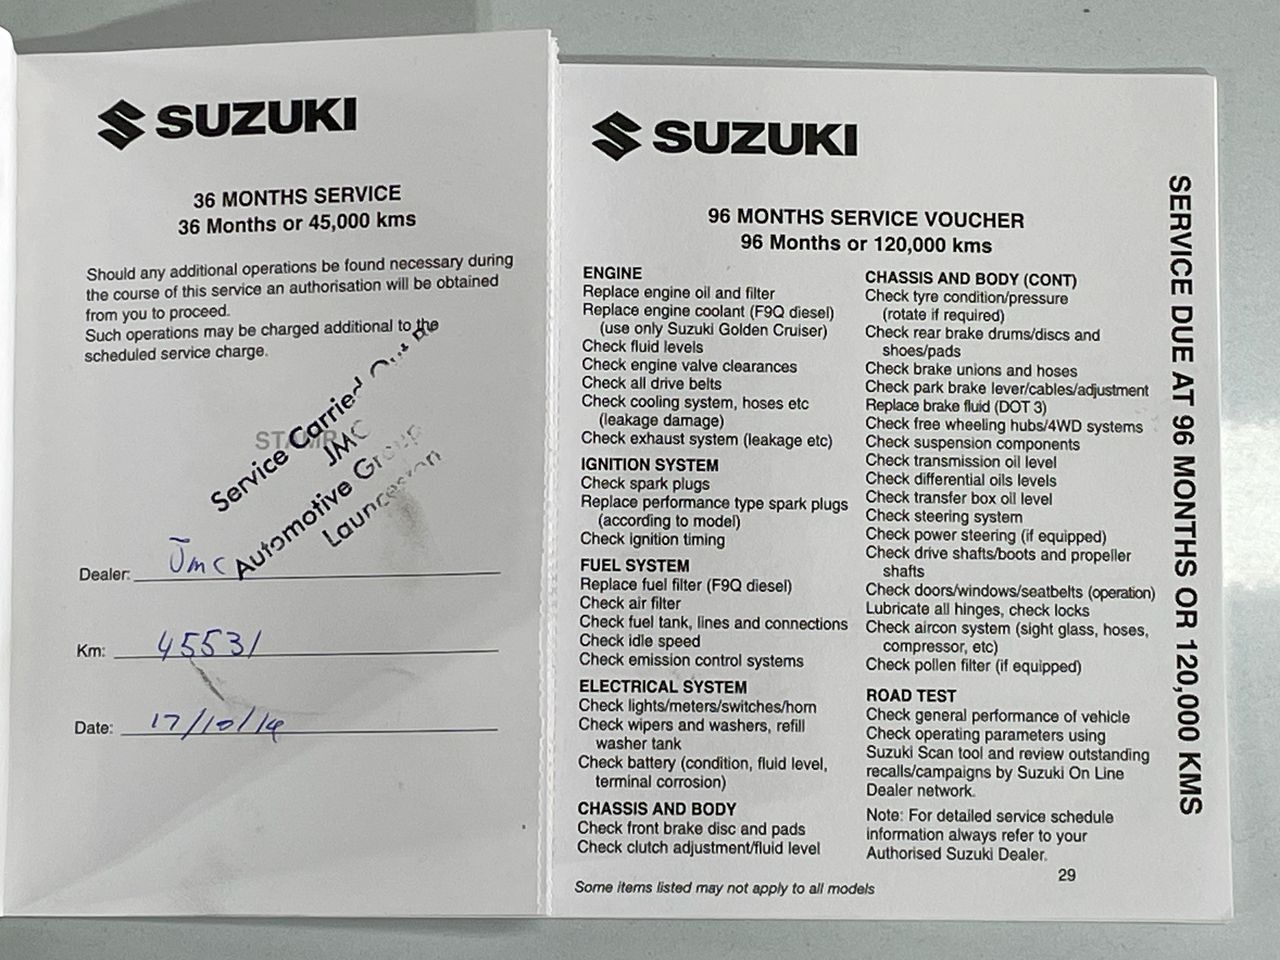 SUZUKI
36 MONTHS SERVICE
36 Months or 45,000 kms
Should any additional operations be found necessary during
the course of this service an authorisation will be obtained
from you to proceed.
Such operations may be charged additional to the
scheduled service charge.
STAMP
Service Carried Out By
JMC
Automotive Group
Launceston
Dealer: Jmc
Km: 45531
Date: 17/10/14
SUZUKI
96 MONTHS SERVICE VOUCHER
96 Months or 120,000 kms
ENGINE
Replace engine oil and filter
Replace engine coolant (F9Q diesel)
(use only Suzuki Golden Cruiser)
Check fluid levels
Check engine valve clearances
Check all drive belts
Check cooling system, hoses etc
(leakage damage)
Check exhaust system (leakage etc)
IGNITION SYSTEM
Check spark plugs
Replace performance type spark plugs
(according to model)
Check ignition timing
FUEL SYSTEM
Replace fuel filter (F9Q diesel)
Check air filter
Check fuel tank, lines and connections
Check idle speed
Check emission control systems
ELECTRICAL SYSTEM
Check lights/meters/switches/horn
Check wipers and washers, refill
washer tank
Check battery (condition, fluid level,
terminal corrosion)
CHASSIS AND BODY
Check front brake disc and pads
Check clutch adjustment/fluid level
CHASSIS AND BODY (CONT)
Check tyre condition/pressure
(rotate if required)
Check rear brake drums/discs and
shoes/pads
Check brake unions and hoses
Check park brake lever/cables/adjustment
Replace brake fluid (DOT 3)
Check free wheeling hubs/4WD systems
Check suspension components
Check transmission oil level
Check differential oils levels
Check transfer box oil level
Check steering system
Check power steering (if equipped)
Check drive shafts/boots and propeller
shafts
Check doors/windows/seatbelts (operation)
Lubricate all hinges, check locks
Check aircon system (sight glass, hoses,
compressor, etc)
Check pollen filter (if equipped)
ROAD TEST
Check general performance of vehicle
Check operating parameters using
Suzuki Scan tool and review outstanding
recalls/campaigns by Suzuki On Line
Dealer network.
Note: For detailed service schedule
information always refer to your
Authorised Suzuki Dealer.
29
Some items listed may not apply to all models
SERVICE DUE AT 96 MONTHS OR 120,000 KMS